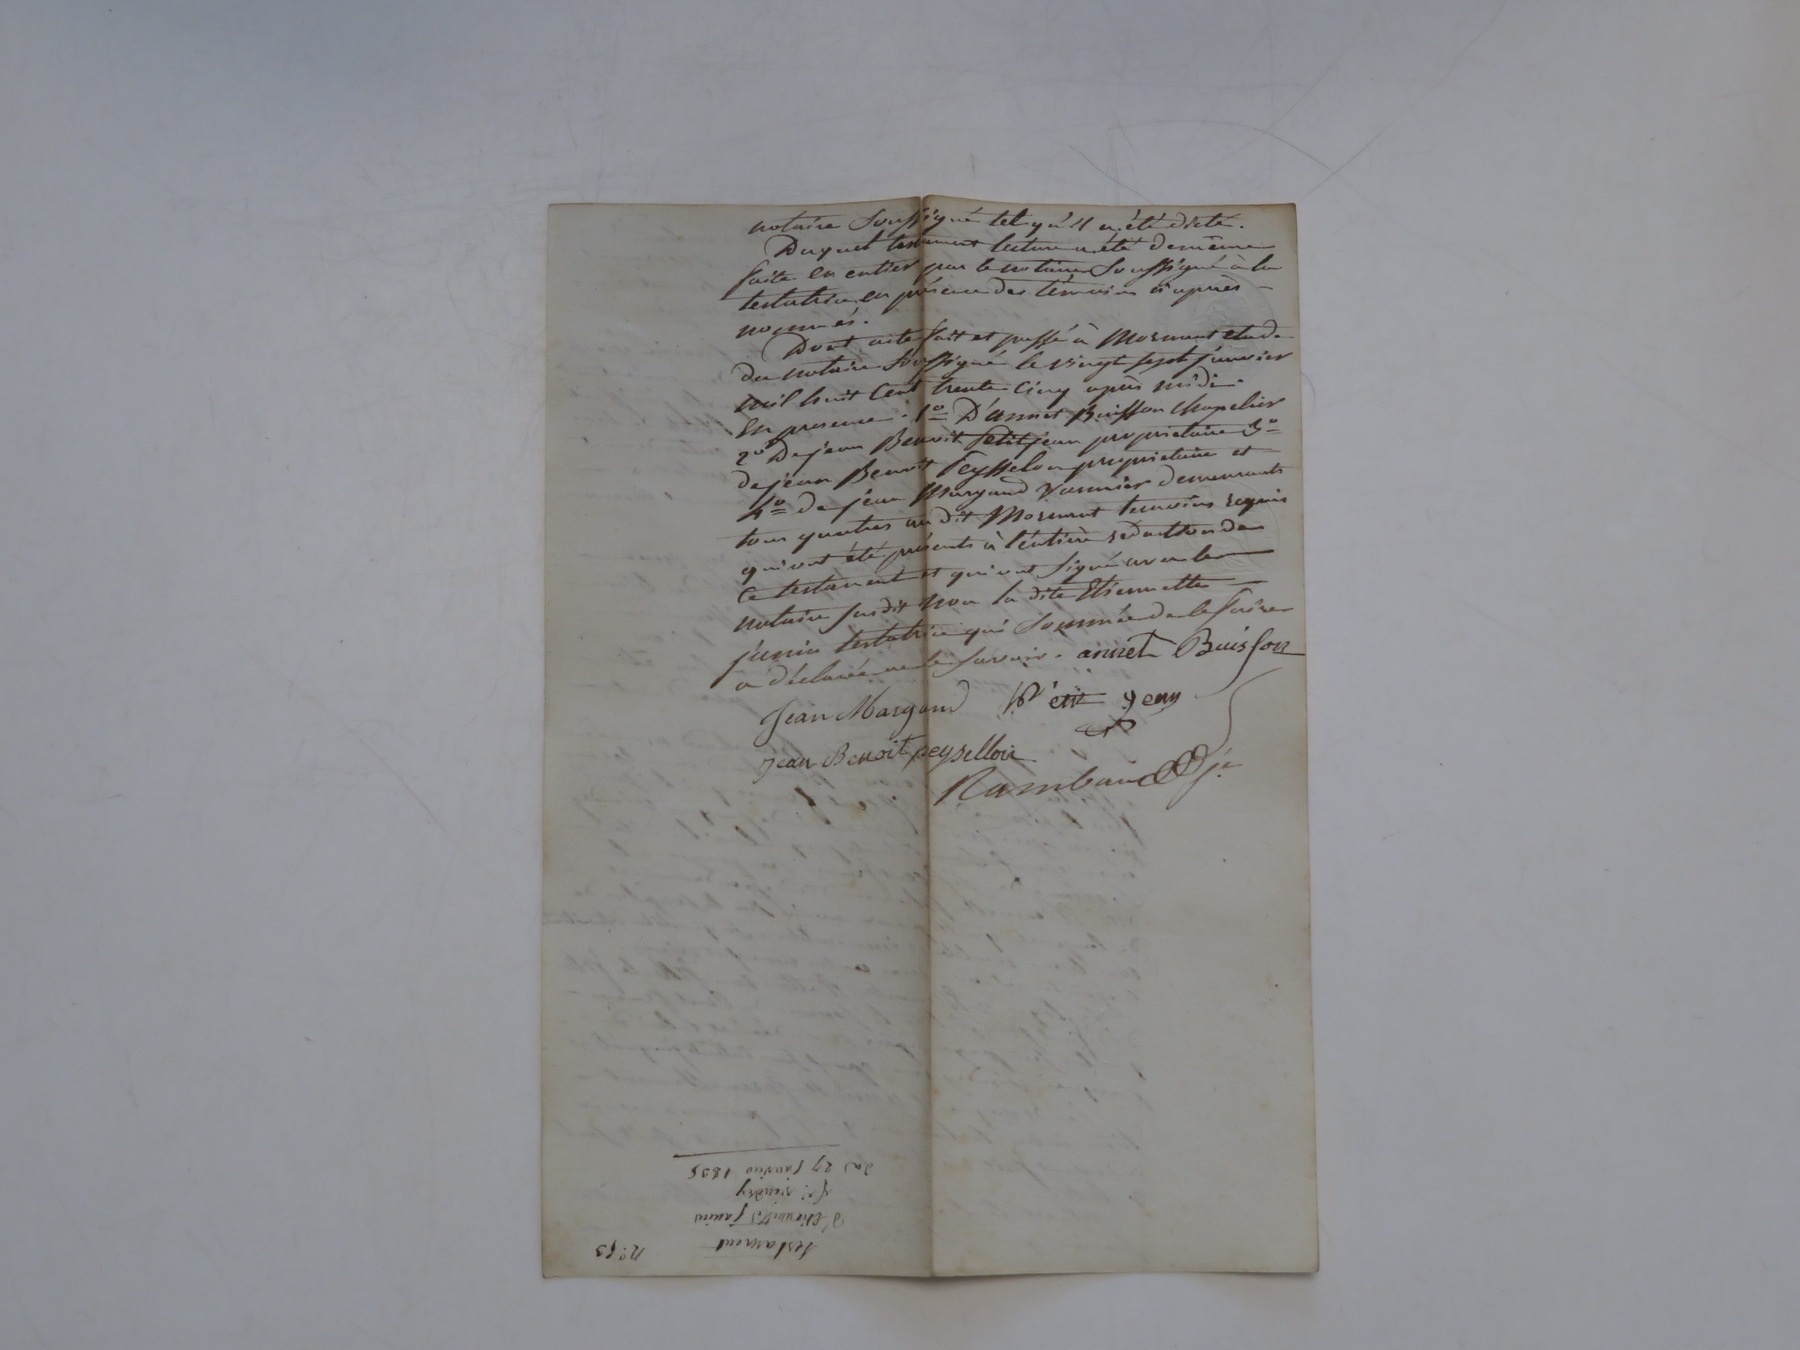 notaire soussigné tel qu'il a été dicté.
Duquel testament lecture a été de même
faite en entier par le notaire soussigné à la
testatrice en présence des témoins ci après
nommés.
Dont acte fait et passé à Mornant etude
du notaire soussigné le vingt sept janvier
mil huit cent trente cinq après midi.
En presence. 1º D'annet Buisson chapelier
2º De jean Benoit Petitjean propriétaire 3º
de jean Benoit Peysselon propriétaire et
4º de jean Margand Vannier demeurants
tous quatres au dit Mornant temoins requis
qui ont été présents à l'entière redaction de
ce testament et qui ont signé avec le
notaire susdit non la dite Etiennette
janin testatrice qui sommée de le faire
a déclaré ne le savoir. annet Buisson
Jean Margand Petit jean
jean Benoit peyselloin
Rambaud je
nº 53
testament
d'Etiennette janin
du 27 janvier 1835